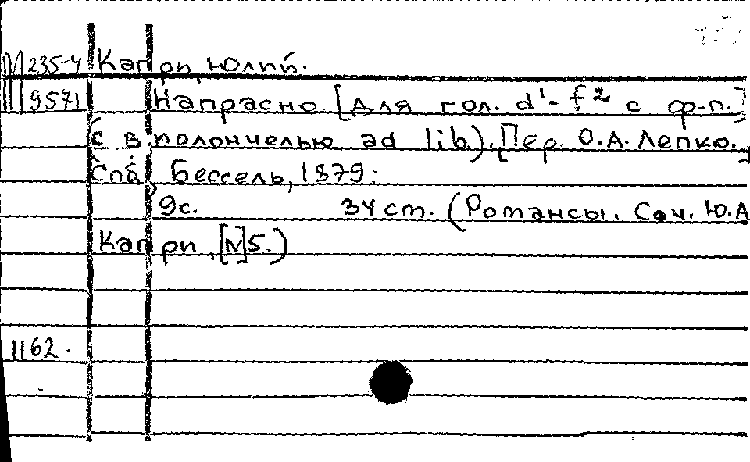 М 235-4 Капри, Юлий.
9571 Напрасно [Для гол. d¹-f² с ф-п.]
с виолончелью ad lib). [Пер. О.А. Лепко.
Спб, Бессель, 1879.
9с. 34 ст. (Романсы. Соч. Ю.А
Капри, [№]5.)
1162.